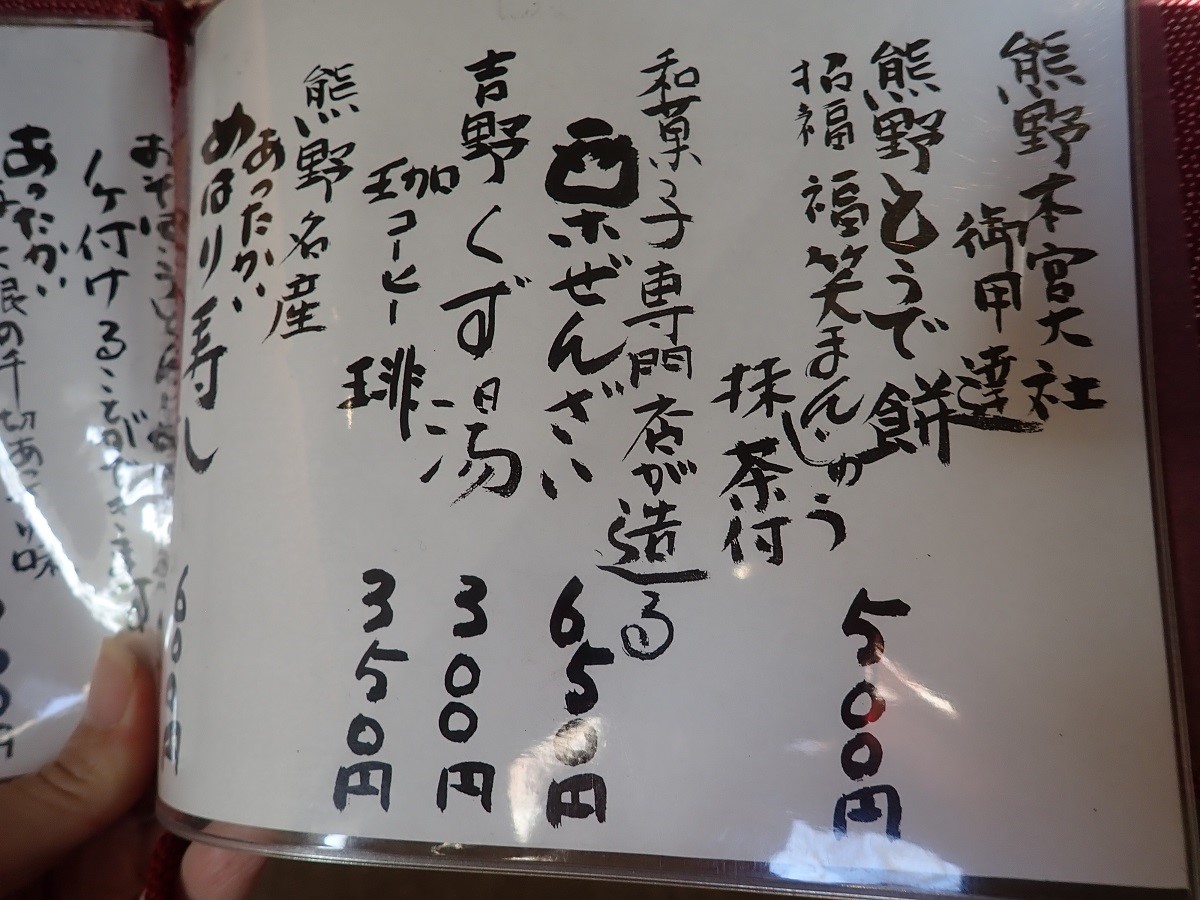 熊野本宮大社
御用達
熊野もうで餅 500円
招福 福笑まんじゅう
抹茶付
和菓子専門店が造る
ぜんざい 650円
吉野くず湯 300円
珈コーヒー琲 350円
熊野名産
あったかい
めはり寿し 600円
ヶ付けることができます
あったかい